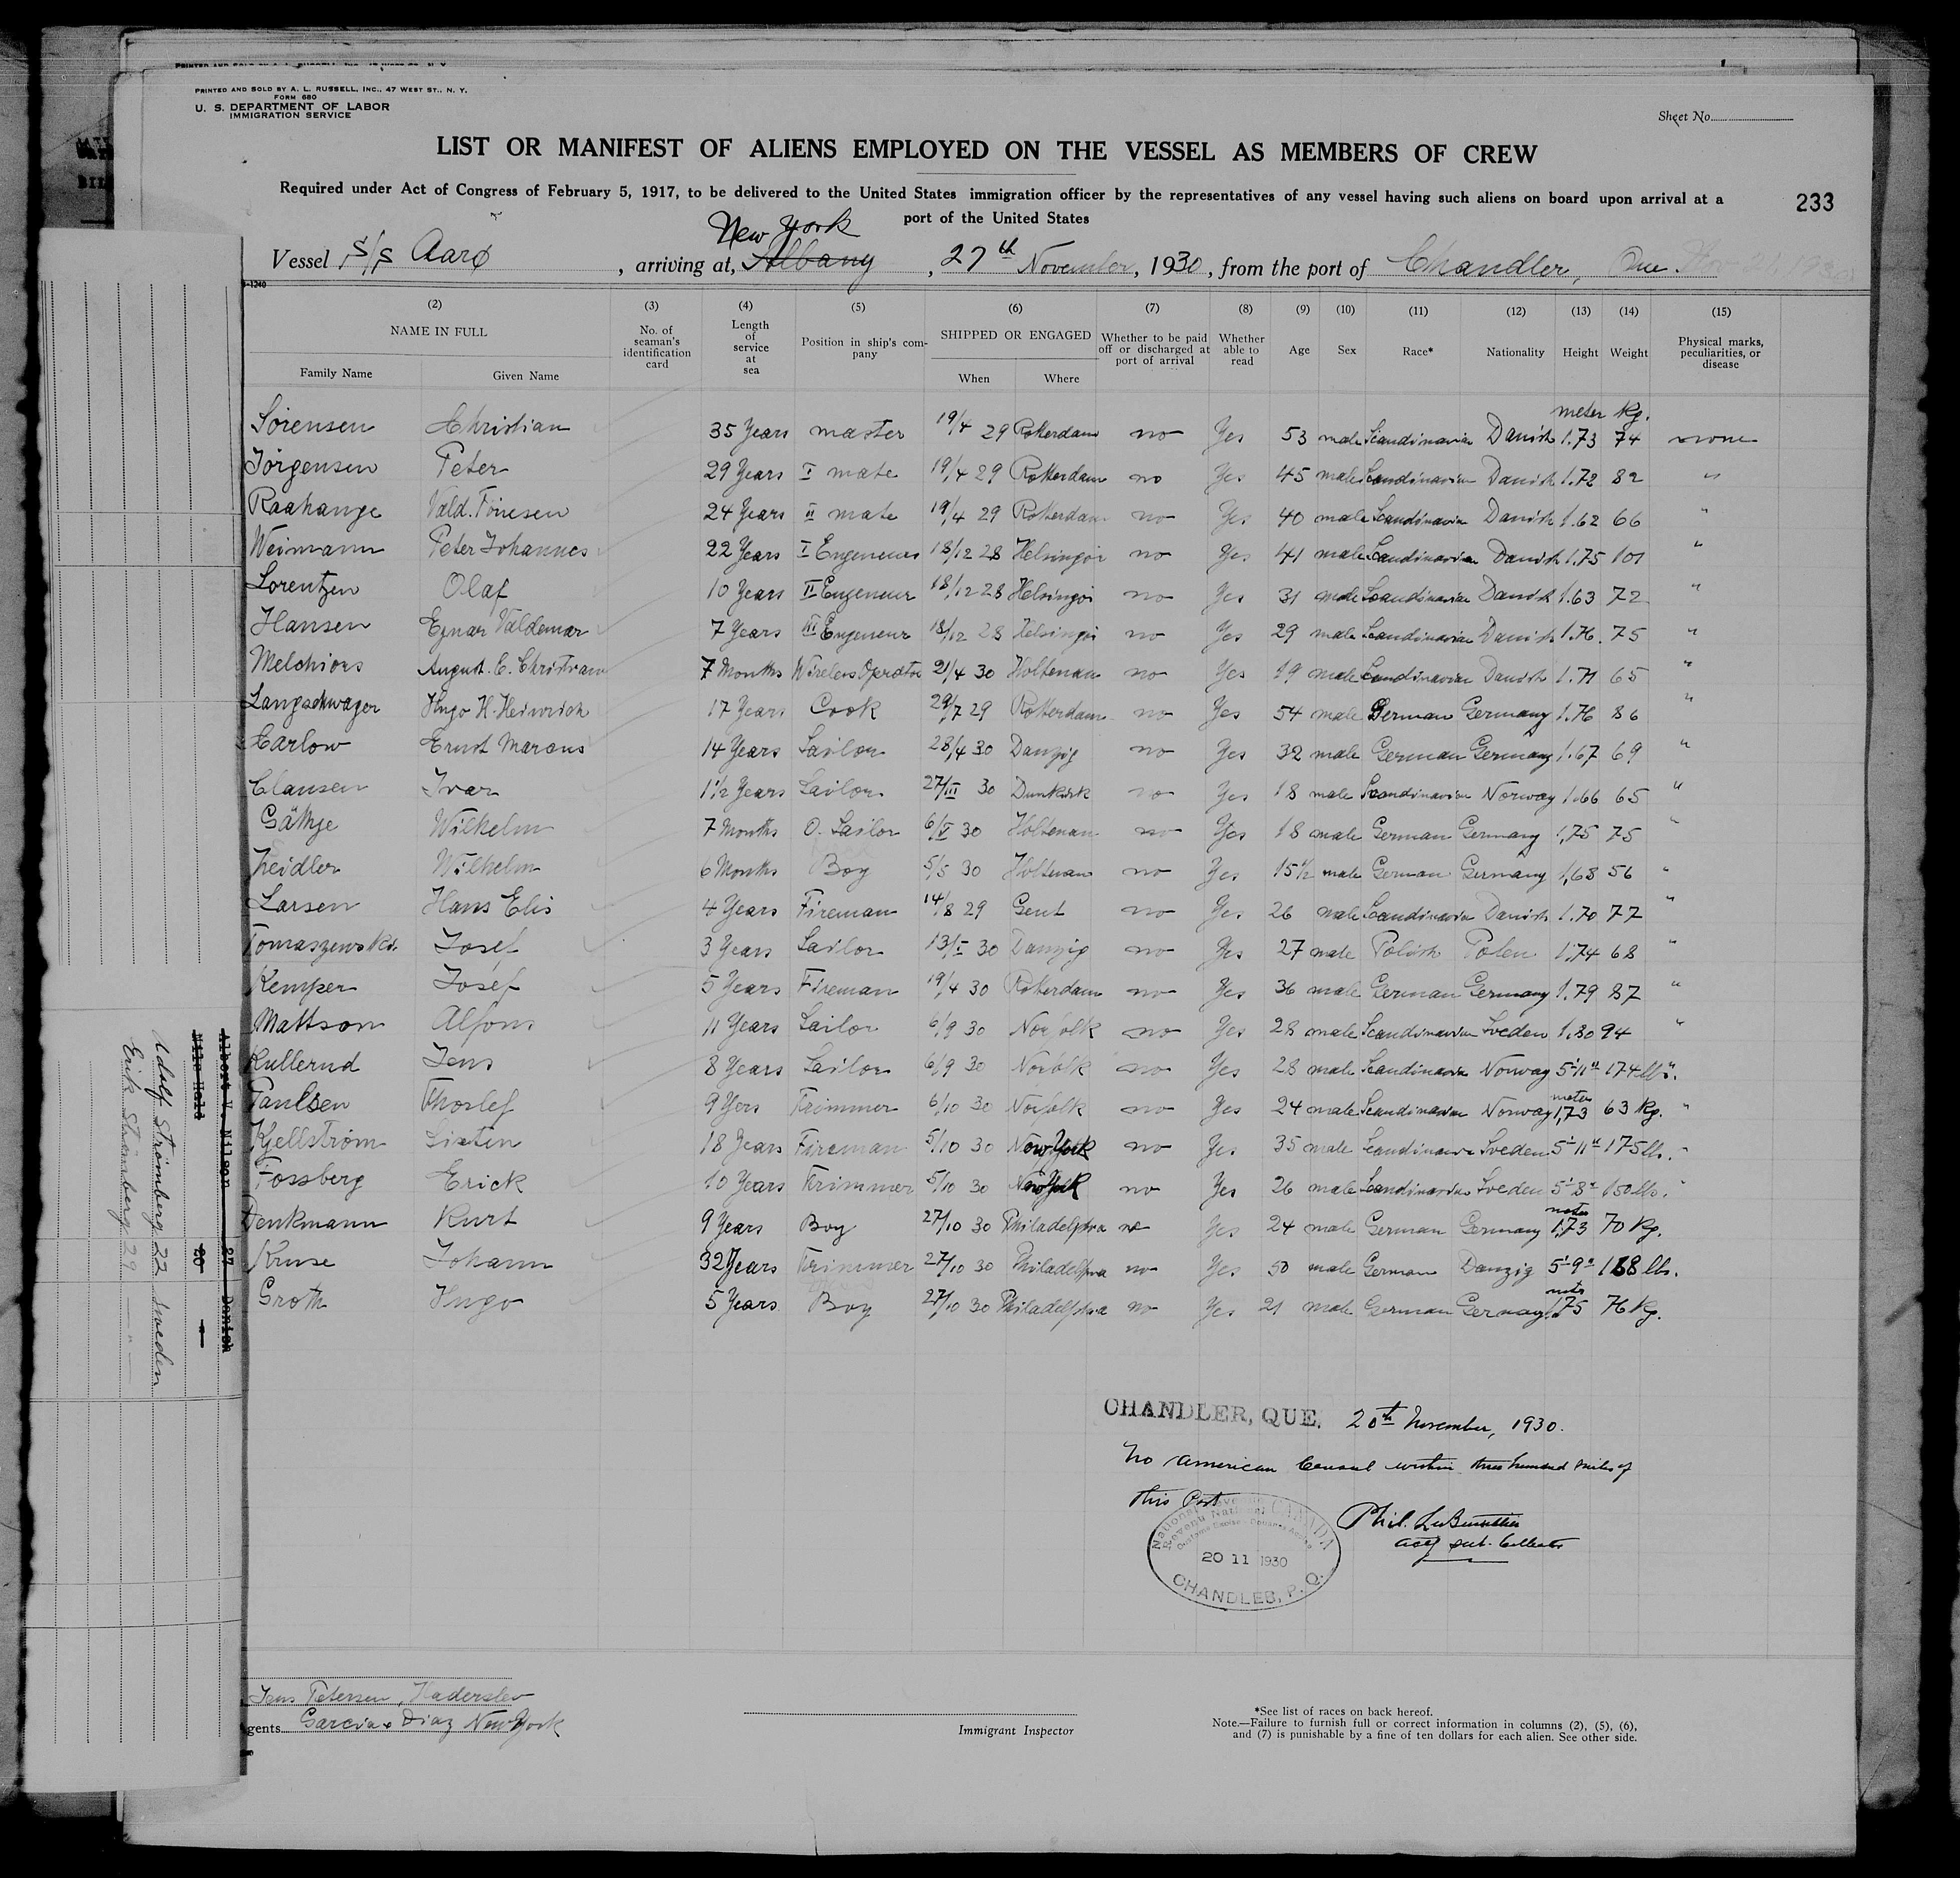 PRINTED AND SOLD BY A. L. RUSSELL, INC., 47 WEST ST., N. Y.
FORM 680
U. S. DEPARTMENT OF LABOR
IMMIGRATION SERVICE
Sheet No.
LIST OR MANIFEST OF ALIENS EMPLOYED ON THE VESSEL AS MEMBERS OF CREW
Required under Act of Congress of February 5, 1917, to be delivered to the United States immigration officer by the representatives of any vessel having such aliens on board upon arrival at a
port of the United States
233
New York
Vessel S/S Aarø, arriving at, Albany, 27th November, 1930, from the port of Chandler, Que.
(2) (3) (4) (5) (6) (7) (8) (9) (10) (11) (12) (13) (14) (15)
NAME IN FULL No. of seaman's identification card Length of service at sea Position in ship's company SHIPPED OR ENGAGED Whether to be paid off or discharged at port of arrival Whether able to read Age Sex Race* Nationality Height Weight Physical marks, peculiarities, or disease
Family Name Given Name When Where
meter Kg.
Sörensen Christian 35 Years master 19/4 29 Rotterdam no Yes 53 male Scandinavian Danish 1.73 74 none
Jörgensen Peter 29 Years I mate 19/4 29 Rotterdam no Yes 45 male Scandinavian Danish 1.72 82 "
Raahauge Vald. 24 Years II mate 19/4 29 Rotterdam no Yes 40 male Scandinavian Danish 1.62 66 "
Weimann Peter Johannes 22 Years I Engeneur 18/12 28 Helsingör no Yes 41 male Scandinavian Danish 1.75 101 "
Lorentzen Olaf 10 Years II Engeneur 18/12 28 Helsingör no Yes 31 male Scandinavian Danish 1.63 72 "
Hansen Ejnar Valdemar 7 Years III Engeneur 18/12 28 Helsingör no Yes 29 male Scandinavian Danish 1.76 75 "
Melchiors August. C. Christian 7 Months Wireless Operator 21/4 30 Holtenau no Yes 19 male Scandinavian Danish 1.71 65 "
Langschwager Hugo H. Heinrich 17 Years Cook 29/7 29 Rotterdam no Yes 54 male German Germany 1.76 86 "
Carlow Ernst Marcus 14 Years Sailor 28/4 30 Danzig no Yes 32 male German Germany 1.67 69 "
Clausen Ivar 1 1/2 Years Sailor 27/III 30 Dunkirk no Yes 18 male Scandinavian Norway 1.66 65 "
Gäthje Wilhelm 7 Months O. Sailor 6/V 30 Holtenau no Yes 18 male German Germany 1,75 75 "
Zeidler Wilhelm 6 Months Boy 5/5 30 Holtenau no Yes 15 1/2 male German Germany 1,68 56 "
Larsen Hans Elis 4 Years Fireman 14/8 29 Gent no Yes 26 male Scandinavian Danish 1.70 77 "
Tomaszewski Josef 3 Years Sailor 13/I 30 Danzig no Yes 27 male Polish Polen 1,74 68 "
Kemper Josef 5 Years Fireman 19/4 30 Rotterdam no Yes 36 male German Germany 1.79 87 "
Mattson Alfons 11 Years Sailor 6/9 30 Norfolk no Yes 28 male Scandinavian Sveden 1.80 94 "
Kullerud Jens 8 Years Sailor 6/9 30 Norfolk no Yes 28 male Scandinavian Norway 5'-11" 174 lbs. "
Paulsen Thorlef 9 Yers Trimmer 6/10 30 Norfolk no Yes 24 male Scandinavian Norway meter 1,73 63 Kg. "
Kjellström Sixten 18 Years Fireman 5/10 30 New York no Yes 35 male Scandinavian Sveden 5'-11" 175 lbs. "
Fossberg Erick 10 Years Trimmer 5/10 30 New York no Yes 26 male Scandinavian Sveden 5'-8" 150 lbs. "
Denkmann Kurt 9 Years Boy 27/10 30 Philadelphia no Yes 24 male German Germany meter 1,73 70 Kg.
Kruse Johann 32 Years Trimmer 27/10 30 Philadelphia no Yes 50 male German Danzig 5'-9" 188 lbs.
Groth Hugo 5 Years Boy 27/10 30 Philadelphia no Yes 21 male German Germany meter 1.75 76 Kg.
Albert V. Nilson 27 Danish
20 "
Adolf Strömberg 22 Sweden
Erik Strömberg 29 — " —
CHANDLER, QUE. 20th November, 1930.
No American Consul within three hundred miles of
this Port
Phil. LeBouthillier
actg sub. Collector
CANADA
20 11 1930
CHANDLER, P. Q.
Jens Petersen, Haderslev
gents Garcia & Diaz New York
Immigrant Inspector
*See list of races on back hereof.
Note.—Failure to furnish full or correct information in columns (2), (5), (6),
and (7) is punishable by a fine of ten dollars for each alien. See other side.